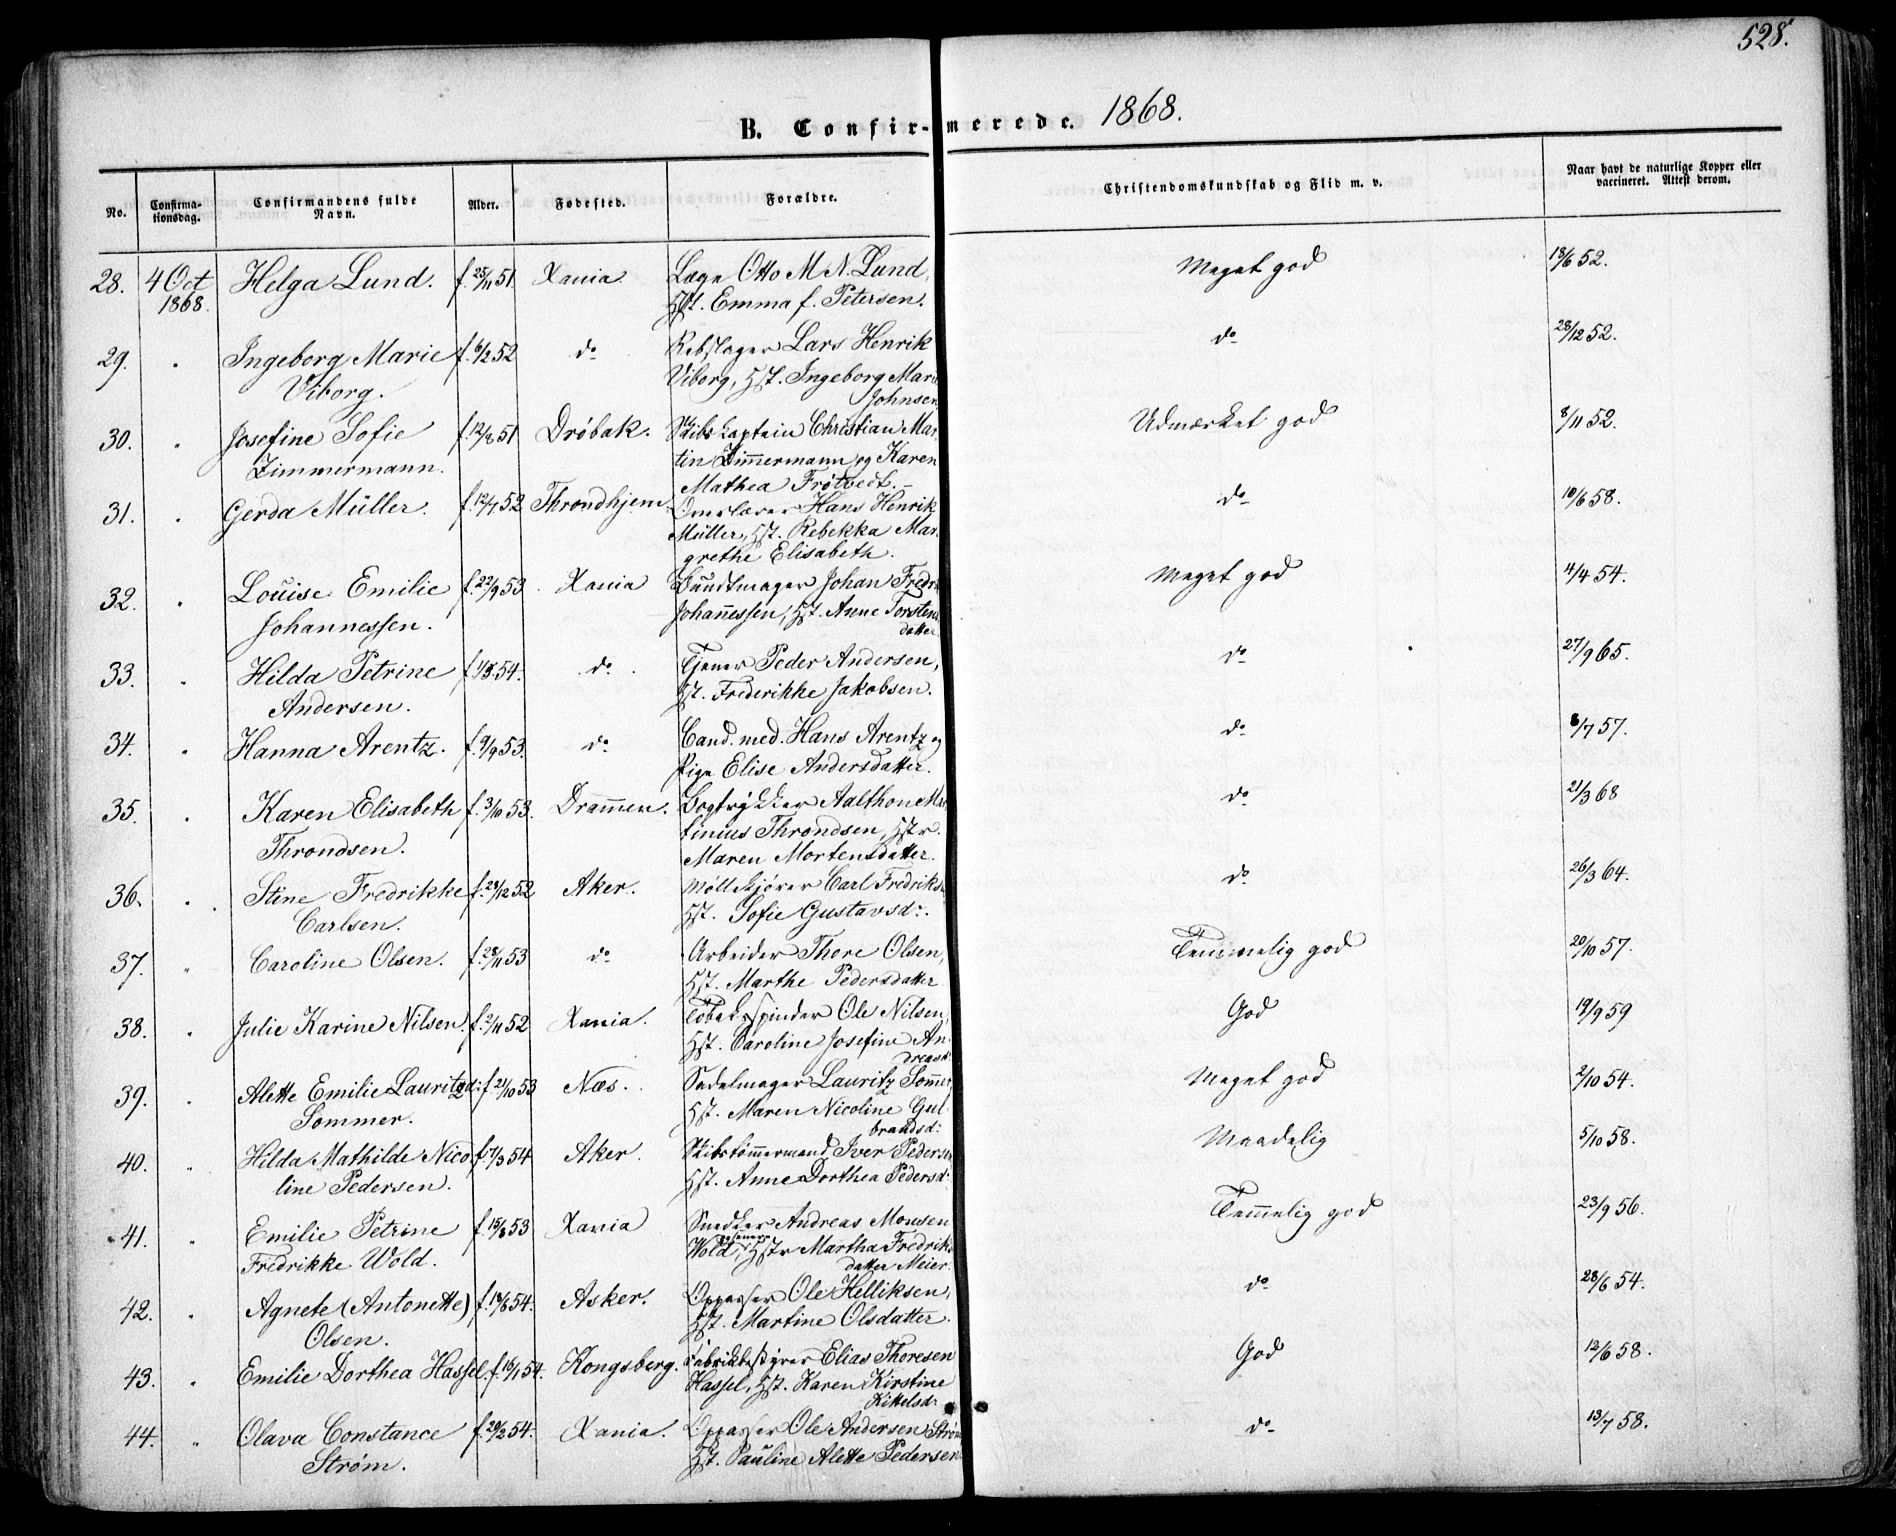 528.
B. Confir-merede. 1868.
No.
Confirma-
tionsdag.
Confirmandens fulde
Navn.
Alder.
Fødested.
Forældre.
Christendomskundskab og Flid m. v.
Naar havt de naturlige Kopper eller
vaccineret. Attest derom.
28. 4 Oct Helga Lund. f. 25/11 51 Xania Læge Otto M N. Lund, Meget god 18/6 52.
1868. Hst. Emma f. Petersen.
29. " Ingeborg Marie f. 6/2 52 do Rebslager Lars Henrik do 28/12 52.
Viborg. Viborg, Hst. Ingeborg Marie
Johnsen
30. " Josefine Sofie f. 12/8 51 Drøbak. Skibskaptein Christian Mar- Udmærket god 8/11 52.
Zimmermann. tin Zimmermann og Karen
Mathea Frøtvedt.
31. " Gerda Müller. f. 12/7 52 Throndhjem. Overlærer Hans Henrik do 10/6 58.
Müller, Hst. Rebekka Mar-
grethe Elisabeth.
32. " Louise Emilie f. 22/9 53 Xania Bundtmager Johan Fredr. Meget god 4/4 54.
Johannessen. Johannessen, Hst. Anne Torstens
datter
33. " Hilda Petrine f. 1/5 54. do. Tjener Peder Andersen, do 27/9 65.
Andersen. Hst. Frederikke Jakobsen.
34. " Hanna Arentz. f. 9/9 53. do Cand. med. Hans Arentz og do 8/7 57.
Pige Elise Andersdatter.
35. " Karen Elisabeth f. 3/10 53. Drammen. Bogtrykker Aalthon Mar do 21/3 68
Throndsen. tinius Throndsen, Hstr.
Maren Mortensdatter.
36. " Stine Fredrikke f. 28/12 52 Aker. Møllekjører Carl Fredriks. do 26/3 64.
Carlsen. Hst. Sofie Gustavsd:.
37. " Caroline Olsen. f. 28/11 53 do Arbeider Thore Olsen, Temmelig god 20/10 57.
Hst. Marthe Pedersdatter
38. " Julie Karine Nilsen. f. 2/11 52 Xania. Tobaksspinder Ole Nilsen, God 19/9 59
Hst. Caroline Josefine An-
dreasd:
39. " Alette Emilie Lauritzd: f. 21/10 53 Næs. Sadelmager Lauritz Sommer, Meget god 2/10 54.
Sommer. Hst. Maren Nicoline Gul-
brandsd:
40. " Hilda Mathilde Nico f. 7/3 54 Aker. Skibstømmermand Iver Pedersen Maadelig 5/10 58.
line Pedersen. Hst. Anne Dorthea Pedersd:
41. " Emilie Petrine f. 15/8 53 Xania Snedker Andreas Monsen Temmelig god 23/9 56.
Fredrikke Wold. Wold, Hstr Martha Fredriks
datter Meier.
42. " Agnete (Antonette) f. 18/6 54. Asker. Oppasser Ole Helliksen, do 28/6 54.
Olsen. Hst. Martine Olsdatter.
43. " Emilie Dorthea Hassel. f. 16/1 54. Kongsberg. Fabrikbestyrer Elias Thoresen God 12/6 58.
Hassel, Hst. Karen Kirstine
Kittelsd:
44. " Olava Constance f. 20/2 54. Xania. Oppasser Ole Andersen Strøm do 13/7 58.
Strøm. Hst. Pauline Alette Pedersen